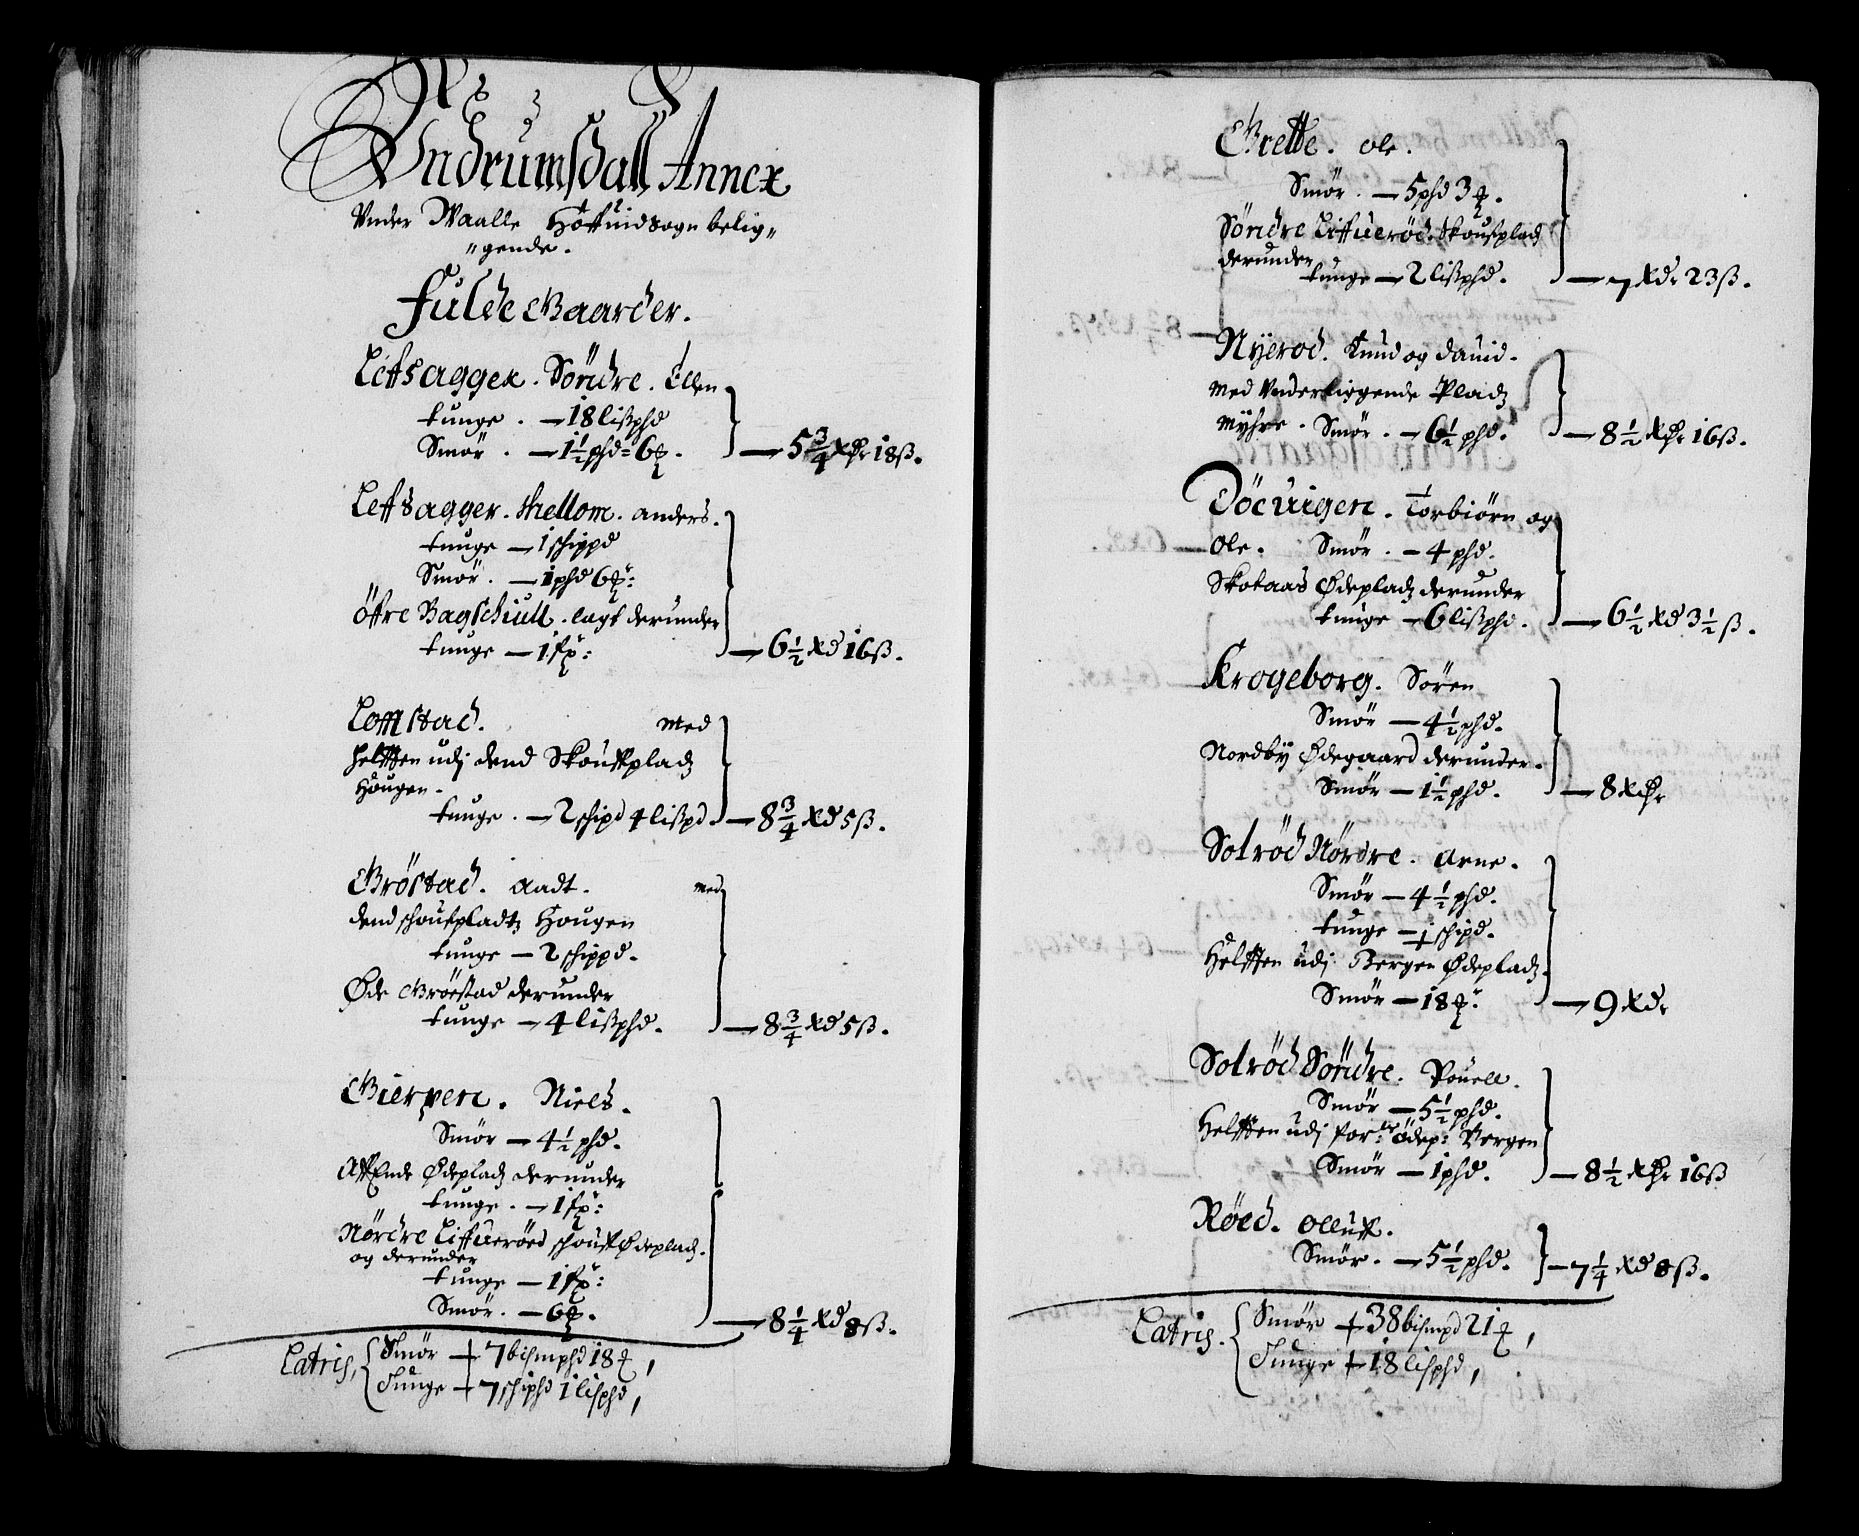 Undrumsdall Annex
Vnder Waalle Höffuidsogn belig„
„gende.
Fulde Gaarder.
Leffsagger. Söndre. Ellen
tunge. — 18 lißphd
Smör. — 1½ phd = 6 ꝶ. — 5¾ Rdr 18 ß.
Leffsagger. Mellom. anders.
tunge — 1 schippd
Smör. — 1 phd 6 ꝶ:
öffre Bagschiull. lagt derunder
tunge — 1 fꝶ: — 6½ Rd 16 ß.
Lomstad. Med
helfften udj dend Skoufpladz
Hougen.
tunge. — 2 schipd 4 lißpd. — 8¾ Rd 5 ß.
Gröstad. Aadt. Med
dend schoufpladtz Hougen
tunge — 2 schippd.
Øde Gröestad derunder
tunge — 4 lißphd. — 8¾ Rd 5 ß.
Gierpen. Niels.
Smör — 4½ phd.
Ødepladz derunder
tunge. — 1 fꝶ:
Nördre Liffueröed schouf Ødepladz.
og derunder
tunge — 1 fꝶ:
Smör. — 6 ꝶ. — 8¼ Rd 8 ß.
Latris, Smör + 7 bismphd 18 ꝶ,
Tunge + 7 schiphd 1 lisphd,
Grette. Ole.
Smör. — 5 phd 3 ꝶ.
Söndre Liffueröd. Skoufpladz
derunder
tunge — 2 lißphd. — 7 Rdr 23 ß.
Nyerod. Knud og Dauid.
Med Vnderliggende Pladz
Myhre. Smör. — 6½ phd. — 8½ Rdr 16 ß.
Döeuigen. Torbiörn og
Ole. Smör. — 4 phd.
Skotaas Ødepladz derunder
tunge — 6 lißphd. — 6½ Rd 3½ ß.
Krogeborg. Sören
Smör — 4½ phd.
Nordby Ødegaard derunder.
Smör — 1½ phd. — 8 Rdr
Solröd Nördre. Arne.
Smör — 4½ phd.
tunge — 1 schipd.
Helfften udj Bergen Ødepladz.
Smör — 18 ꝶ: — 9 Rdr
Solröd Söndre. Pouell.
Smör — 5½ phd.
Helfften udj for:ne ödep: Bergen
Smör — 1 phd. — 8½ Rdr 16 ß
Röed. Olluff.
Smör. — 5½ phd. — 7¼ Rd 8 ß.
Latris. Smör + 38 bismpd 21 ꝶ,
Tunge + 18 lisphd,